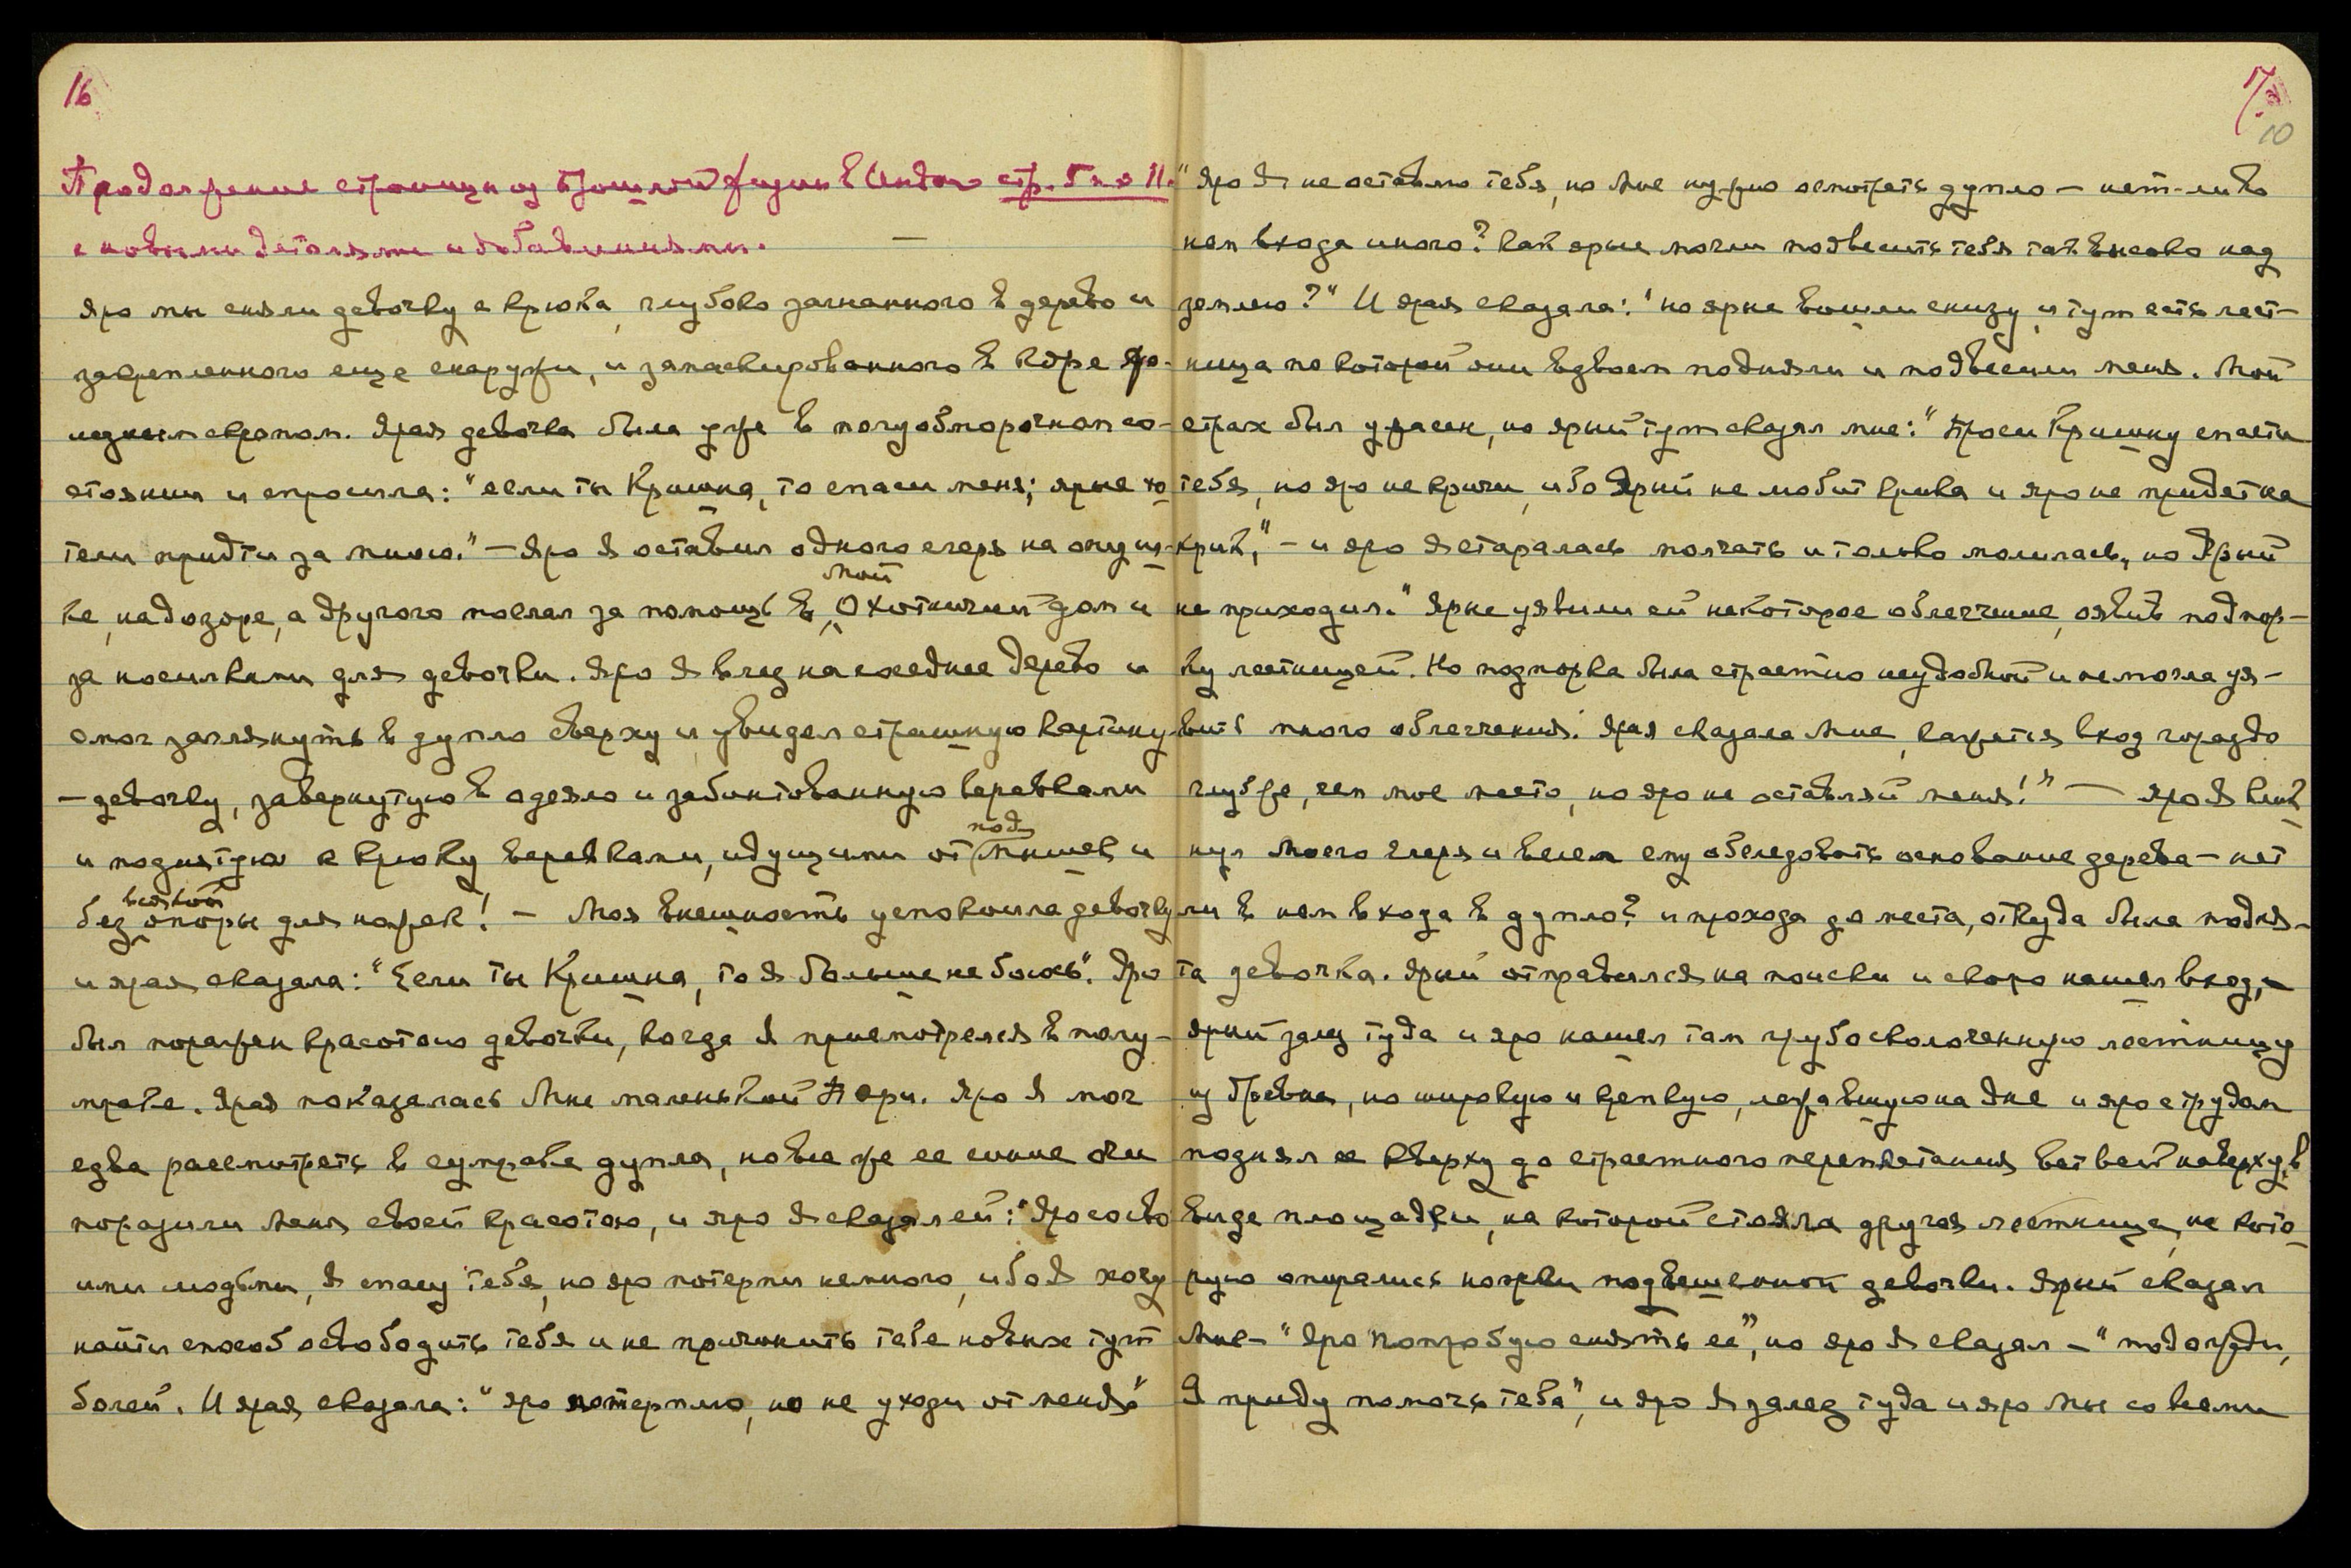 16
Продолжение страницы из прошлой жизни в Индии стр. 5 по 11.
с новыми деталями и добавлениями. —
Яро мы сняли девочку с крюка, глубоко загнанного в дерево и
закрепленного еще снаружи, и замаскированного в коре яро-
. Ярая девочка была уже в полуобморочном со-
стоянии и спросила: "если ты Кришна, то спаси меня; ярые хо-
тели придти за мною." — Яро Я оставил одного егеря на опуш-
ке, на дозоре, а другого послал за помощь в мой Охотничий дом и
за носилками для девочки. Яро Я влез на соседнее дерево и
смог заглянуть в дупло сверху и увидел страшную картину
— девочку, завернутую в одеяло и забинтованную веревками
и поднятую к крюку веревками, идущими от подмышек и
без всякой опоры для ножек! — Моя внешность успокоила девочку
и ярая сказала: "Если ты Кришна, то я больше не боюсь". Яро
был поражен красотою девочки, когда Я присмотрелся в полу-
мраке. Ярая показалась Мне маленькой Пери. Яро Я мог
едва рассмотреть в сумраке дупла, но все же ее синие очи
поразили Меня своей красотою, и яро Я сказал ей: "Яро со сво-
ими людьми, Я спасу тебя, но яро потерпи немного, ибо Я хочу
найти способ освободить тебя и не причинить тебе новых тут
болей. И ярая сказала: "яро потерплю, но не уходи от меня"
17
10
"Яро Я не оставлю тебя, но Мне нужно осмотреть дупло — нет-ли в
нем входа иного? Как ярые могли подвесить тебя так высоко над
землею?" И ярая сказала: "но ярые вошли снизу, и тут есть лест-
ница по которой они вдвоем подняли и подвесили меня. Мой
страх был ужасен, но ярый тут сказал мне: "Проси Кришну спасти
тебя, но яро не кричи, ибо Ярый не любит крика и яро не придет на
крик," — и яро я старалась молчать и только молилась, но Ярый
не приходил." Ярые уявили ей некоторое облегчение, оявив подпор-
ку лестницей. Но подпорка была страстно неудобной и не могла уя-
вить много облегчения. Ярая сказала Мне, кажется вход гораздо
глубже, чем мое место, но яро не оставляй меня!" — Яро Я клик-
нул Моего егеря и велел ему обследовать основание дерева — нет
ли в нем входа в дупло? и прохода до места, откуда была подня-
та девочка. Ярый отправился на поиски и скоро нашел вход, и
ярый залез туда и яро нашел там грубо сколоченную лестницу
из бревна, но широкую и крепкую, лежавшую на дне и яро с трудом
поднял ее кверху до страстного переплетения ветвей наверху, в
виде площадки, на которой стояла другая лестница, на кото-
рую опирались ножки подвешенной девочки. Ярый сказал
Мне — "Яро попробую снять ее", но яро Я сказал — "подожди,
Я приду помочь тебе", и яро Я залез туда и яро Мы со всеми